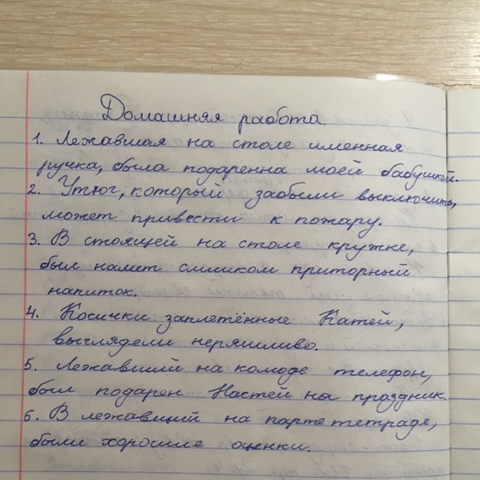 Домашняя работа.
1. Лежавшая на столе именная
ручка, была подаренна моей бабушкой.
2. Утюг, который забыли выключить,
может привести к пожару.
3. В стоящей на столе кружке,
был налит слишком приторный
напиток.
4. Косички заплетённые Катей,
выглядели неряшливо.
5. Лежавший на комоде телефон,
был подарен Настей на праздник.
6. В лежавшей на парте тетраде,
были хорошие оценки.